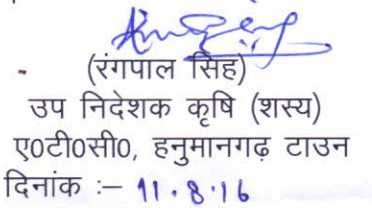 (रंगपाल सिंह)
उप निदेशक कृषि (शस्य)
ए0टी0सी0, हनुमानगढ़ टाउन
दिनांक :– 11.8.16